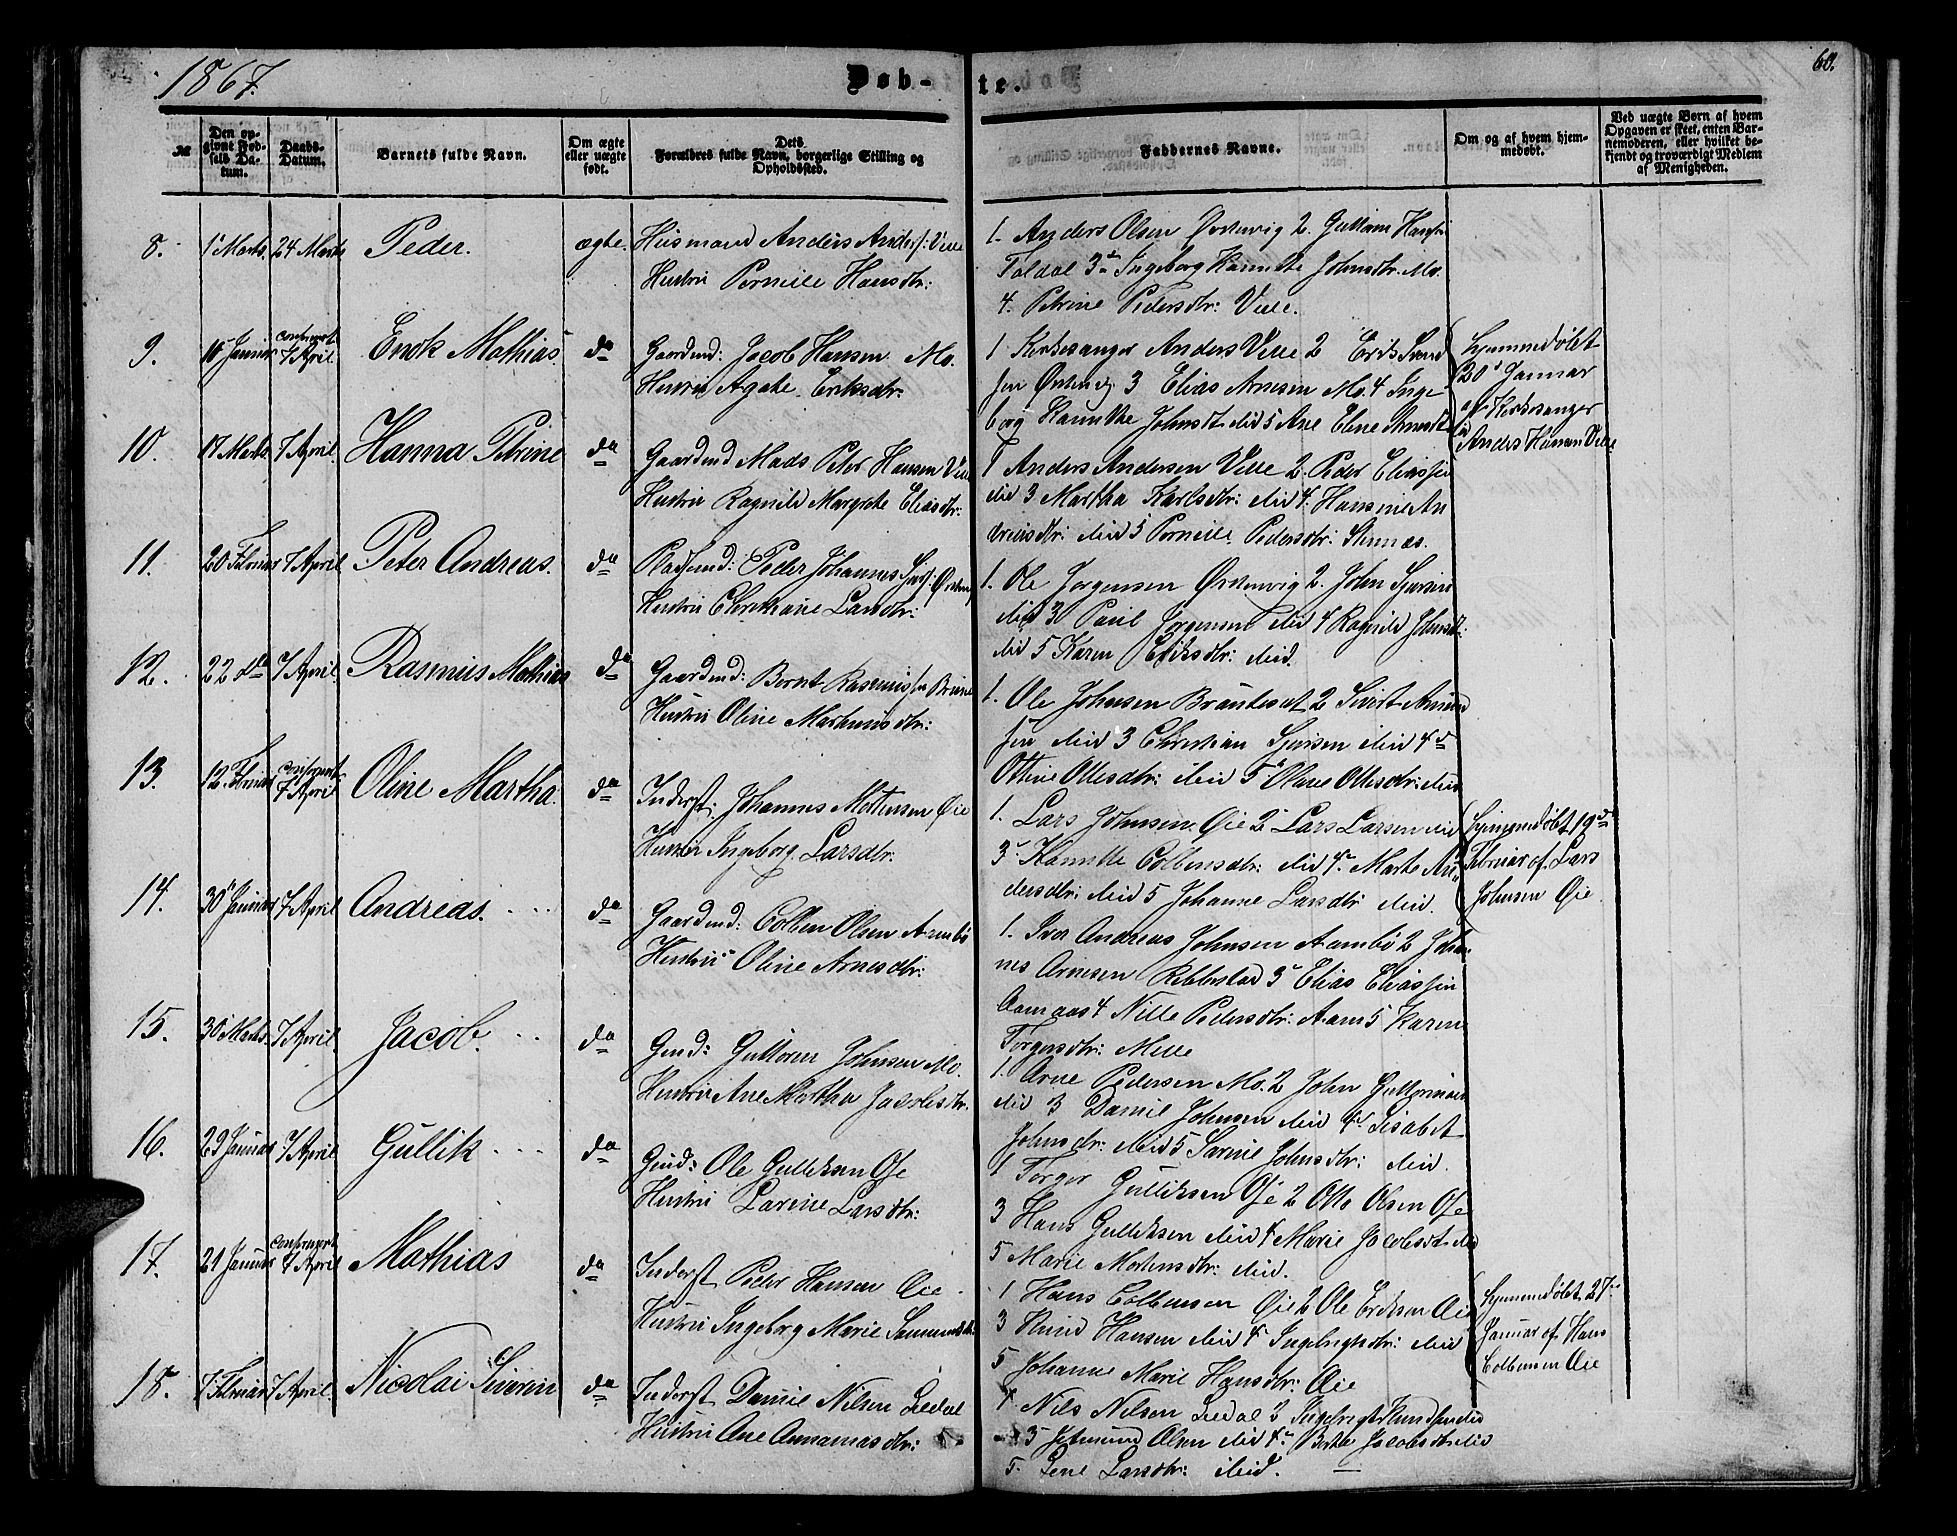 1867.
Døb-
te.
60.
№
Den op-
givne Fød-
sels Da-
tum.
Daabs-
Datum.
Barnets fulde Navn.
Om ægte
eller uægte
født.
Dets
Forældres fulde Navn, borgerlige Stilling og
Opholdssted.
Faddernes Navne.
Om og af hvem hjem-
medøbt.
Ved uægte Børn af hvem
Opgaven er skeet, enten Bar-
nemoderen, eller hvilket be-
kjendt og troværdigt Medlem
af Menigheden.
8. 1 Marts. 24 Marts Peder. ægte. Husmand Anders Anders: Velle
Hustru Pernille Hansdtr:
1. Anders Olsen Ørstenvig 2. Guttorm
3 Ingeborg Johnsdtr. Mo.
4. Petrine Pedersdtr: Velle.
9. 16 Januar confirmert 7 April Enok Mathias do Gaardmd: Jacob Hansen Mo.
Hustru Agathe Eriksdtr:
1 Kirkesanger Anders Velle 2 Erik
3 Elias Arnesen Mo. 4 Inge-
borg Johnsdt ibid 5 Ane Eline
Hjemmedøbt
20 Januar
af Kirkesanger
Anders Hansen Velle
10. 17 Marts 7 April Hanna Petrine do Gaardmd Mads Peter Hansen Velle
Hustru Ragnild Margrete Eliasdtr:
1 Anders Andersen Velle 2. Peder Eliassen
ibid 3 Martha Karlsdtr: ibid 4. Hansine An
dreasdtr: ibid 5 Pernille Pedersdtr:
11. 20 Februar 7 April Peter Andreas. do Pladsmd: Peder Johannes
Hustru Christiane Larsdtr:
1. Ole Jørgensen Ørstenvig 2. John Sjursen
ibid 3 Paul Jørgensen ibid 4 Ragnild Johnsdtr:
ibid 5 Karen Eriksdtr: ibid.
12. 22 do 7 April Rasmus Mathias do Gaardmd: Bernt Rasmussen
Hustru Oline Martinusdtr:
1. Ole Johnsen 2 Sivert
sen ibid 3 Christian Sjursen ibid 4
Ottine Ottesdtr: ibid 5 Olave Ottesdtr: ibid
13. 12 Februar confirmert 7 April Oline Martha. do Inderst: Johannes Mathiasen Øie
Hustru Ingeborg Larsdtr:
1. Lars Johnsen Øie 2 Lars Larsen ibid
3 Colbensdtr: ibid 4. Marte An-
dersdtr: ibid 5 Johanne Larsdtr ibid.
Hjemmedøbt 19
Februar af Lars
Johnsen Øie.
14. 30 Januar 7 April Andreas. do Gaardmd: Colben Olsen Aambø
Hustru Oline Arnesdtr:
1. Iver Andreas Johnsen Aambø 2 Johan-
nes Arnesen Ribbestad 3 Elias Eliassen
Aamaas 4 Nille Pedersdtr: Aam 5 Karen
Torgersdtr: Melle
15. 30 Marts 7 April Jacob. do Gmd: Guttorm Johnsen Mo.
Hustru Ane Martha Jacobsdtr.
1. Arne Pedersen Mo. 2 John Guttormsen
ibid 3 Daniel Johnsen ibid 4 Lisabet
Johnsdtr: ibid 5 Sarine Johnsdtr: ibid.
16. 29 Januar 7 April Gullik do Gmd: Ole Gulliksen Øie
Hustru Larine Larsdtr:
1 Torger Gulliksen Øie 2 Otto Olsen Øie
3 Hans Gulliksen ibid 4 Marie Jacobsdt ibid
5 Marie Mortensdtr: ibid.
17. 21 Januar confirmert 7 April Mathias do Inderst Peder Hansen Øie
Hustru Ingeborg Marie
1 Hans Colbensen Øie 2 Ole Eriksen Øie
3 Knud Hansen ibid 4 ibid
5 Johanne Marie Hansdtr: Øie
Hjemmedøbt 27
Januar af Hans
Colbensen Øie
18. 7 Februar 7 April Nicolai Siverin do Inderst Daniel Nilsen Ledal
Hustru Ane
1 Nils Nilsen Ledal 2 Ingebrigt Knudsen ibid
3 Olsen ibid 4. Berte Jacobsdt ibid
5. Lene Larsdtr: ibid.